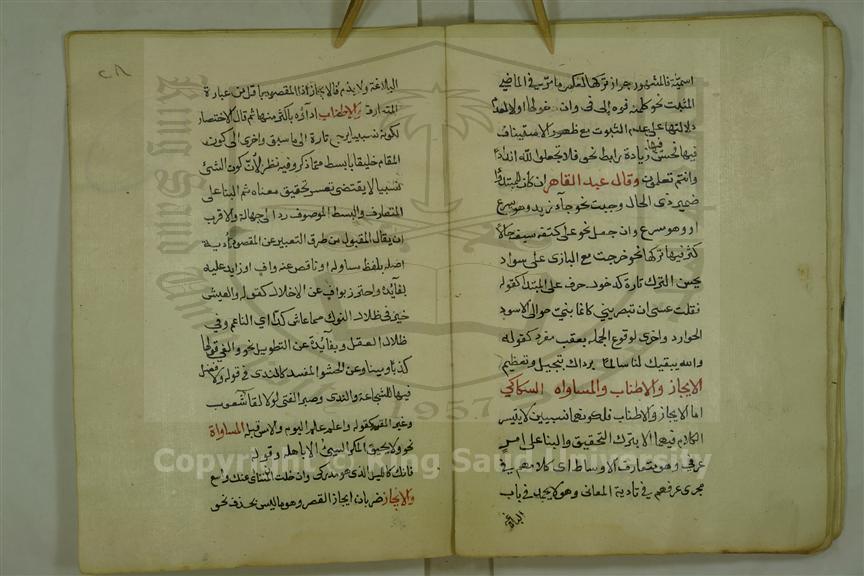 اسمية فالمشهور جواز تركها لعكس ما مر في الماضي
المثبت نحو كلمته فوه إلى في وان دخولها اولى لعدم
دلالتها على عدم الثبوت مع ظهور الاستيناف
فيها فحسن زيادة رابط نحو فلا تجعلوا لله اندادا
وانتم تعلمون وقال عبد القاهر ان كان المبتدا
ضمير ذى الحال وجبت نحو جاء زيد وهو يسرع
او وهو مسرع وان جعل نحو على كتفه سيف حالا
كثر فيها تركها نحو خرجت مع البازى على سواد
يحسن الترك تارة لدخول حرف على المبتدا كقوله
فقلت عسى ان تبصرينى كانما بنى حوالى الاسود
الحوارد واخرى لوقوع الجملة بعقب مفرد كقوله
والله يبقيك لنا سالما برداك تبجيل وتعظيم
الايجاز والاطناب والمساواه السكاكي
اما الايجاز والاطناب فلكونهما نسبيين لا يتيسر
الكلام فيهما الا بترك التحقيق والبنا على امر
عرفي وهو متعارف الاوساط اى كلامهم في
مجرى عرفهم في تادية المعانى وهو لا يحمد في باب
البلاغة
البلاغة ولا يذم فالايجاز اداا المقصود باقل من عبارة
المتعارف والاطناب اداؤه باكثر منها ثم قال الاختصار
لكونه نسبيا يرجع تارة الى ما سبق واخرى الى كون
المقام خليقا بابسط مما ذكر وفيه نظر لان كون الشئ
نسبيا لا يقتضى تعسر تحقيق معناه ثم البنا على
المتعارف والبسط الموصوف رد الى جهالة والاقرب
ان يقال المقبول من طرق التعبير عن المقصود تادية
اصله بلفظ مساو له او ناقص عنه واف او زايد عليه
بفايدة واحترز بواف عن الاخلال كقوله والعيش
خير فى ظلال النوك ممن عاش كدا اي الناعم وفي
ظلال العقل وبفايدة عن التطويل نحو والفى قولها
كذبا ومينا وعن الحشو المفسد كالندى في قوله ولا فضل
فيها للشجاعة والندى وصبر الفتى لولا لقا شعوب
وغير المفسد كقوله واعلم علم اليوم والامس قبله المساواة
نحو ولا يحيق المكر السيئ الا باهله وقوله
فانك كالليل الذى هو مدركي وان خلت ان المنتاى عنك واسع
والايجاز ضربان ايجاز القصر وهو ما ليس بحذف نحو
Copyright © King Saud University
1957